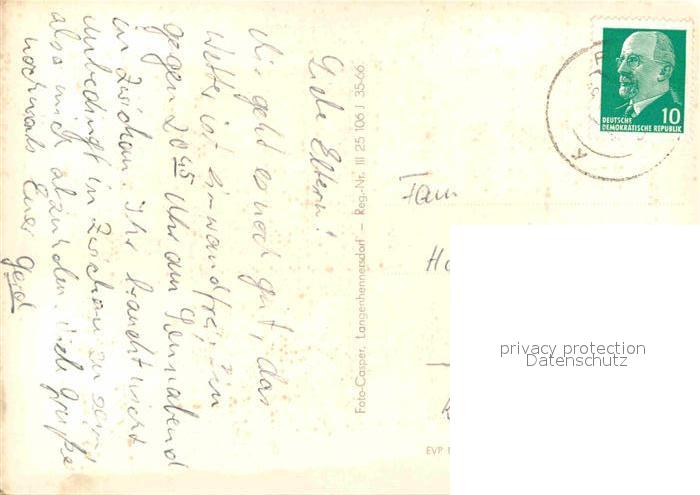 Liebe Eltern!
Mir geht es noch gut, das
Wetter ist einwandfrei, bin
gegen 20 45 Uhr am Sonnabend
in Zwickau. Ihr braucht nicht
unbedingt in Zwickau zu sein
also mich abzuholen. Viele Grüße
nochmals Euer Gerd
Foto-Casper, Langenhennersdorf — Reg.-Nr. III 25 106 J 35-66
DEUTSCHE
DEMOKRATISCHE REPUBLIK
10
Fam
privacy protection
Datenschutz
EVP